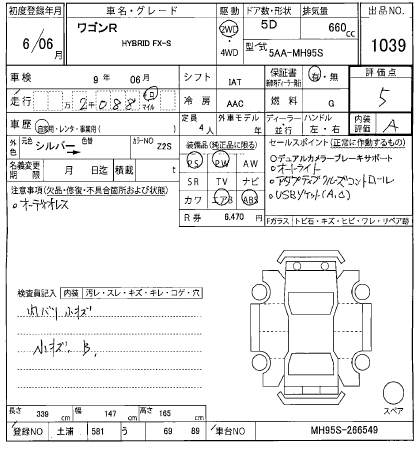 初度登録年月 車名・グレード 駆動 ドア数・形状 排気量 出品NO.
6/06月 ワゴンR HYBRID FX-S 2WD 4WD 5D 660cc 1039
型式 5AA-MH95S
車検 9年 06月 シフト IAT 保証書 有・無 評価点
走行 万 2千088 キロ マイル 冷房 AAC 燃料 G 5
車歴 自家用・レンタ・事業用( ) 定員 4人 外車モデル 年 ディーラー 並行 ハンドル 左・右 内装評価 A
外色 元色 シルバー→ 色替 カラーNO Z2S 装備品(純正品に限る) セールスポイント(正常に作動するもの)
名義変更期限 月 日迄 積載 t PS PW AW
○デュアルカメラブレーキサポート
注意事項(欠品・修復・不具合箇所および状態) SR TV ナビ
○オートライト
○オーディオレス カワ エアB ABS
○アダプティブクルーズコントロール
○USBソケット(A,C)
R券 6,470円 Fガラス トビ石・キズ・ヒビ・ワレ・リペア跡
検査員記入 内装 汚レ・スレ・キズ・キレ・コゲ・穴
内バリ小キズ
小キズ. B.
スペア
長さ 339cm 幅 147cm 高さ 165cm
登録NO 土浦 581 う 69 89 車台NO MH95S-266549